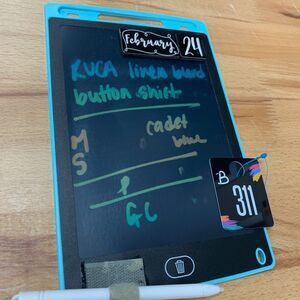 February 24
RUCA linen blend
button shirt
M cadet
S blue
P
GC
B
311